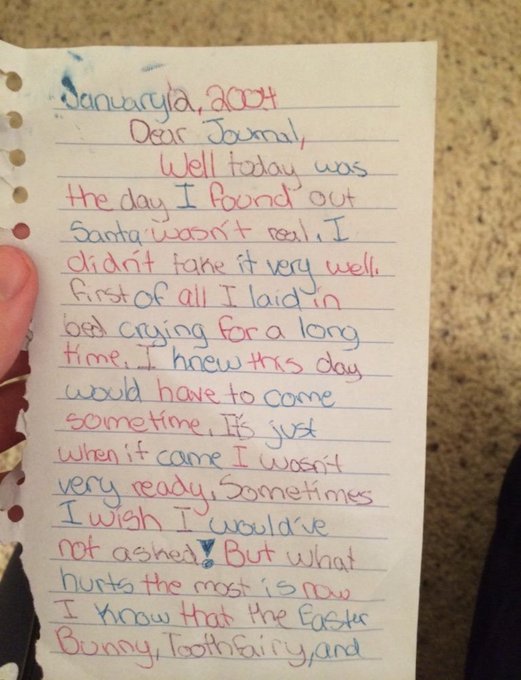 January 12, 2004
Dear Journal,
Well today was
the day I found out
Santa wasn't real. I
didn't take it very well.
first of all I laid in
bed crying for a long
time. I knew this day
would have to come
sometime. It's just
when it came I wasn't
very ready. Sometimes
I wish I would've
not asked! But what
hurts the most is now
I know that the Easter
Bunny, Toothfairy, and